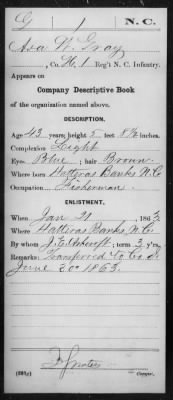 G | 1 | N. C.
Asa W. Gray
, Co. H, 1 Reg't N. C. Infantry.
Appears on
Company Descriptive Book
of the organization named above.
DESCRIPTION.
Age 43 years; height 5 feet 8½ inches.
Complexion Light
Eyes Blue; hair Brown
Where born Hatteras Banks N.C.
Occupation Fisherman
ENLISTMENT.
When Jan 21, 1863.
Where Hatteras Banks N.C.
By whom ; term 3 y'rs.
Remarks: Transferred to Co.
June 30 1863.
Copyist.